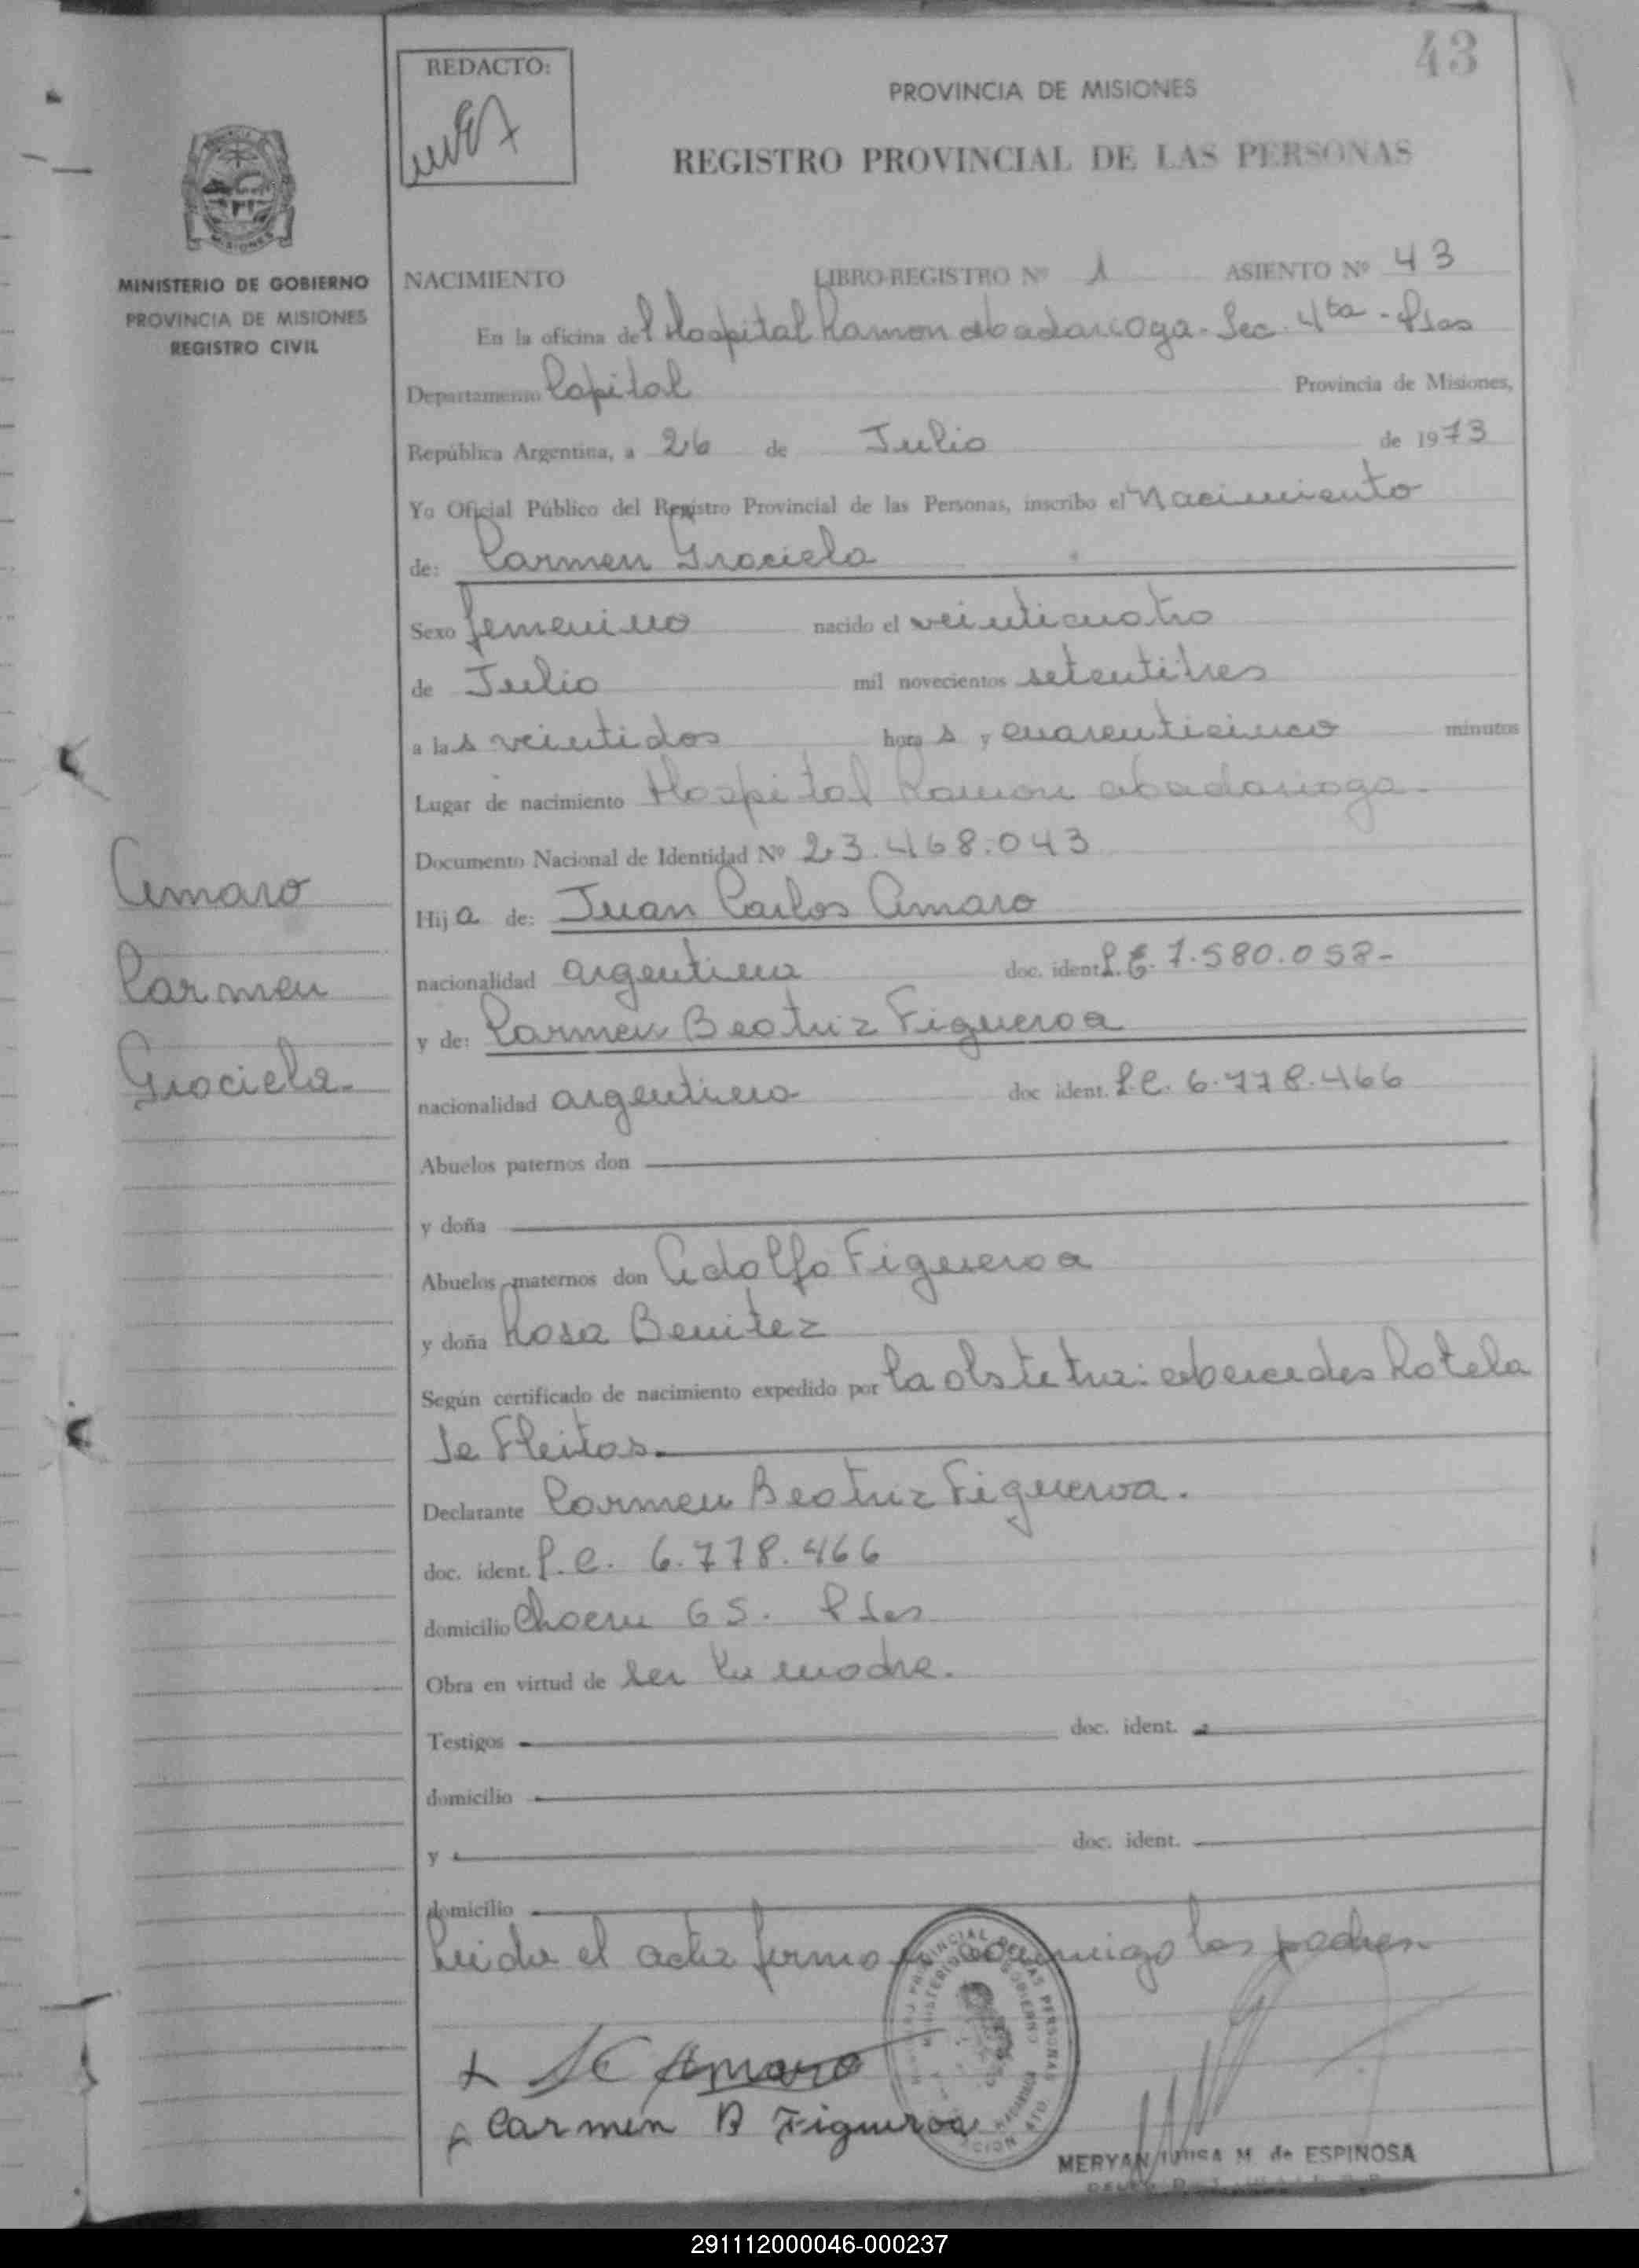 43
REDACTO:
PROVINCIA DE MISIONES
REGISTRO PROVINCIAL DE LAS PERSONAS
MISIONES
MINISTERIO DE GOBIERNO
PROVINCIA DE MISIONES
REGISTRO CIVIL
NACIMIENTO LIBRO-REGISTRO Nº 1 ASIENTO Nº 43
En la oficina del Hospital Ramon Madariaga - Sec. 4ta - Psas
Departamento Capital Provincia de Misiones,
República Argentina, a 26 de Julio de 1973
Yo Oficial Público del Registro Provincial de las Personas, inscribo el Nacimiento
de: Carmen Graciela
Sexo femenino nacido el veinticuatro
de Julio mil novecientos setentitres
a las veintidos horas y cuarenticinco minutos
Lugar de nacimiento Hospital Ramon Madariaga.
Documento Nacional de Identidad Nº 23.468.043
Amaro
Carmen
Graciela.
Hija de: Juan Carlos Amaro
nacionalidad argentina doc. ident. L.E. 7.580.058-
y de: Carmen Beatriz Figueroa
nacionalidad argentina doc ident. L.C. 6.778.466
Abuelos paternos don
y doña
Abuelos maternos don Adolfo Figueroa
y doña Rosa Benitez
Según certificado de nacimiento expedido por la obstetriz: Mercedes Rotela
de Fleitas.
Declarante Carmen Beatriz Figueroa.
doc. ident. L.C. 6.778.466
domicilio Chacra 65. Psas
Obra en virtud de ser la madre.
Testigos doc. ident.
domicilio
y doc. ident.
domicilio
Leida el acta firman conmigo los padres
x JC Amaro
x Carmen B Figueroa
MERYAN LUISA M. de ESPINOSA
291112000046-000237